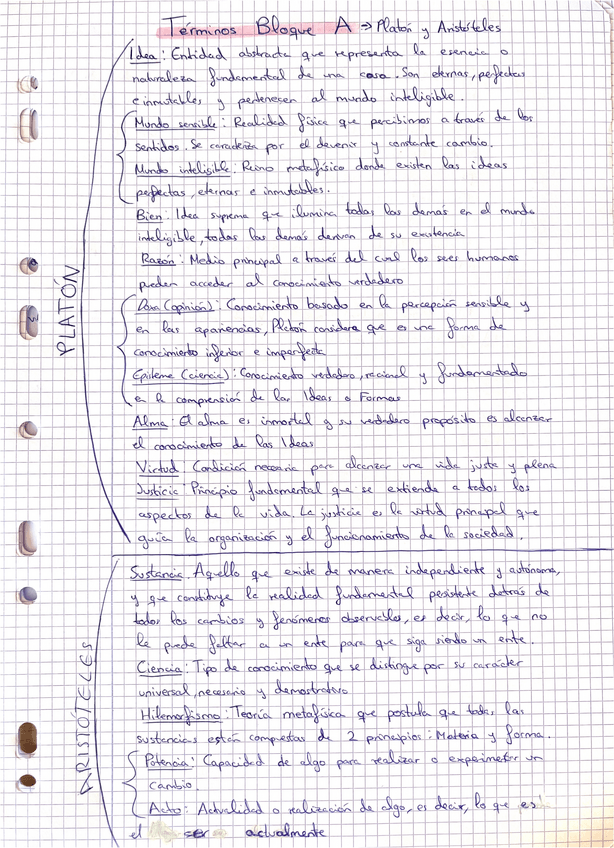 Términos Bloque A → Platón y Aristóteles
PLATÓN
Idea: Entidad abstracta que representa la esencia o
naturaleza fundamental de una cosa. Son eternas, perfectas
e inmutables y pertenecen al mundo inteligible.
Mundo sensible: Realidad física que percibimos a través de los
sentidos. Se caracteriza por el devenir y constante cambio.
Mundo inteligible: Reino metafísico donde existen las ideas
perfectas, eternas e inmutables.
Bien: Idea suprema que ilumina todas las demás en el mundo
inteligible, todas las demás derivan de su existencia
Razón: Medio principal a través del cual los seres humanos
pueden acceder al conocimiento verdadero
Doxa (opinión): Conocimiento basado en la percepción sensible y
en las apariencias, Platón considera que es una forma de
conocimiento inferior e imperfecta
Episteme (ciencia): Conocimiento verdadero, racional y fundamentado
en la comprensión de las Ideas o Formas
Alma: El alma es inmortal y su verdadero propósito es alcanzar
el conocimiento de las Ideas
Virtud: Condición necesaria para alcanzar una vida justa y plena
Justicia: Principio fundamental que se extiende a todos los
aspectos de la vida. La justicia es la virtud principal que
guía la organización y el funcionamiento de la sociedad.
ARISTÓTELES
Sustancia: Aquello que existe de manera independiente y autónoma,
y que constituye la realidad fundamental persistente detrás de
todos los cambios y fenómenos observables, es decir, lo que no
le puede faltar a un ente para que siga siendo un ente.
Ciencia: Tipo de conocimiento que se distingue por su carácter
universal, necesario y demostrativo
Hilemorfismo: Teoría metafísica que postula que todas las
sustancias están compuestas de 2 principios: Materia y forma.
Potencia: Capacidad de algo para realizar o experimentar un
cambio.
Acto: Actualidad o realización de algo, es decir, lo que es
el ser actualmente